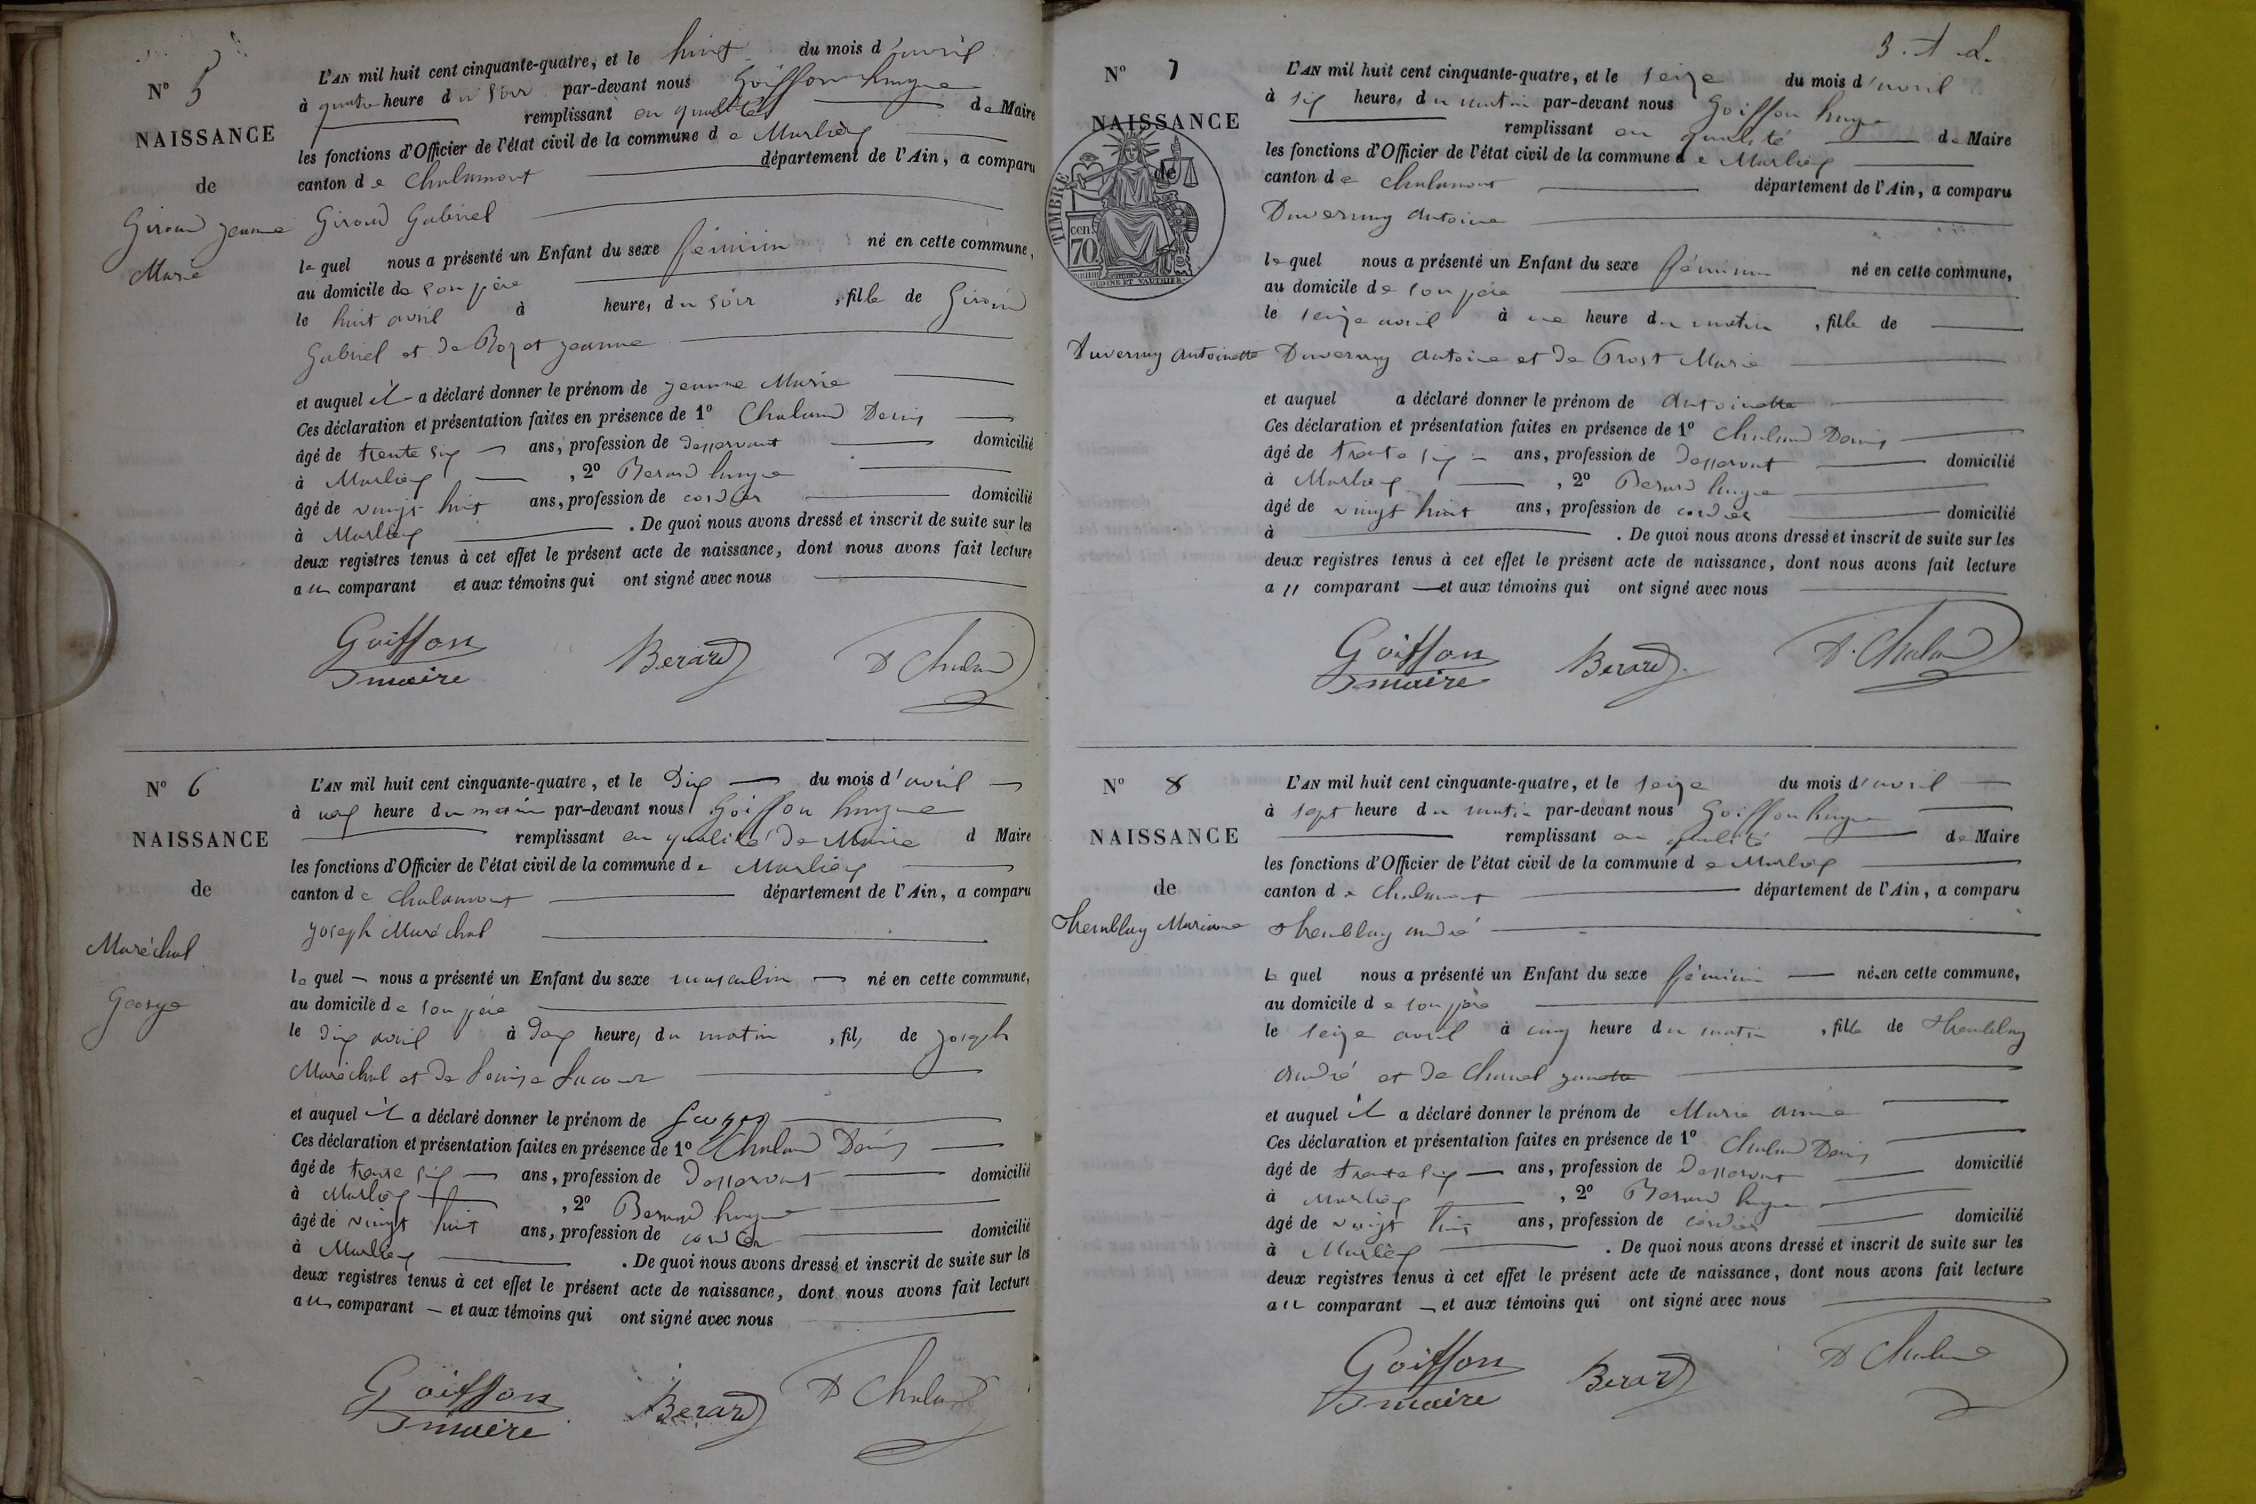 N° 5
NAISSANCE
de
Giroud Jeanne
Marie
L'AN mil huit cent cinquante-quatre, et le huit du mois d'avril
à quatre heure du soir par-devant nous Goiffon hugue
remplissant en qualité de Maire
les fonctions d'Officier de l'état civil de la commune de Marlieg
canton de Chalamont département de l'Ain, a comparu
Giroud Gabriel
lequel nous a présenté un Enfant du sexe féminin né en cette commune,
au domicile de son père
le huit avril à heure, du soir, fille de Giroud
Gabriel et de Rozet jeanne
et auquel il a déclaré donner le prénom de jeanne Marie
Ces déclaration et présentation faites en présence de 1° Chaland Denis
âgé de trente six ans, profession de desservant domicilié
à Marlieg, 2° Berard hugue
âgé de vingt huit ans, profession de cordier domicilié
à Marlieg. De quoi nous avons dressé et inscrit de suite sur les
deux registres tenus à cet effet le présent acte de naissance, dont nous avons fait lecture
au comparant et aux témoins qui ont signé avec nous
Goiffon Berard D Chaland
maire
N° 6
NAISSANCE
de
Maréchal
George
L'AN mil huit cent cinquante-quatre, et le dix du mois d'avril
à heure du matin par-devant nous Goiffon hugue
remplissant en qualité de Marie d Maire
les fonctions d'Officier de l'état civil de la commune de Marlieg
canton de Chalamont département de l'Ain, a comparu
joseph Maréchal
lequel nous a présenté un Enfant du sexe masculin né en cette commune,
au domicile de son père
le dix avril à heure, du matin, fils de joseph
Maréchal et de Louise Lacour
et auquel il a déclaré donner le prénom de
Ces déclaration et présentation faites en présence de 1° Chaland Denis
âgé de trente six ans, profession de desservant domicilié
à Marlieg, 2° Berard hugue
âgé de vingt huit ans, profession de cordier domicilié
à Marlieg. De quoi nous avons dressé et inscrit de suite sur les
deux registres tenus à cet effet le présent acte de naissance, dont nous avons fait lecture
au comparant et aux témoins qui ont signé avec nous
Goiffon Berard D Chaland
maire
N° 7
NAISSANCE
de
TIMBRE
cen.
70
OUDINE ET VAUTHIER
Duvernay Antoinette
L'AN mil huit cent cinquante-quatre, et le seize du mois d'avril
à six heures du matin par-devant nous Goiffon hugue
remplissant en qualité de Maire
les fonctions d'Officier de l'état civil de la commune de Marlieg
canton de Chalamont département de l'Ain, a comparu
Duvernay Antoine
lequel nous a présenté un Enfant du sexe féminin né en cette commune,
au domicile de son père
le seize avril à une heure du matin, fille de
Duvernay Antoine et de Prost Marie
et auquel a déclaré donner le prénom de Antoinette
Ces déclaration et présentation faites en présence de 1° Chaland Denis
âgé de trente six ans, profession de desservant domicilié
à Marlieg, 2° Berard hugue
âgé de vingt huit ans, profession de cordier domicilié
à . De quoi nous avons dressé et inscrit de suite sur les
deux registres tenus à cet effet le présent acte de naissance, dont nous avons fait lecture
au comparant et aux témoins qui ont signé avec nous
Goiffon Berard D. Chaland
maire
N° 8
NAISSANCE
de
Thremblay Marianne
L'AN mil huit cent cinquante-quatre, et le seize du mois d'avril
à sept heure du matin par-devant nous Goiffon hugue
remplissant en qualité de Maire
les fonctions d'Officier de l'état civil de la commune de Marlieg
canton de Chalamont département de l'Ain, a comparu
Thremblay andré
lequel nous a présenté un Enfant du sexe féminin né en cette commune,
au domicile de son père
le seize avril à cinq heure du matin, fille de Thremblay
andré et de Chanel janette
et auquel il a déclaré donner le prénom de Marie anne
Ces déclaration et présentation faites en présence de 1° Chaland Denis
âgé de trente six ans, profession de desservant domicilié
à Marlieg, 2° Berard hugue
âgé de vingt huit ans, profession de cordier domicilié
à Marlieg. De quoi nous avons dressé et inscrit de suite sur les
deux registres tenus à cet effet le présent acte de naissance, dont nous avons fait lecture
au comparant et aux témoins qui ont signé avec nous
Goiffon Berard D Chaland
maire